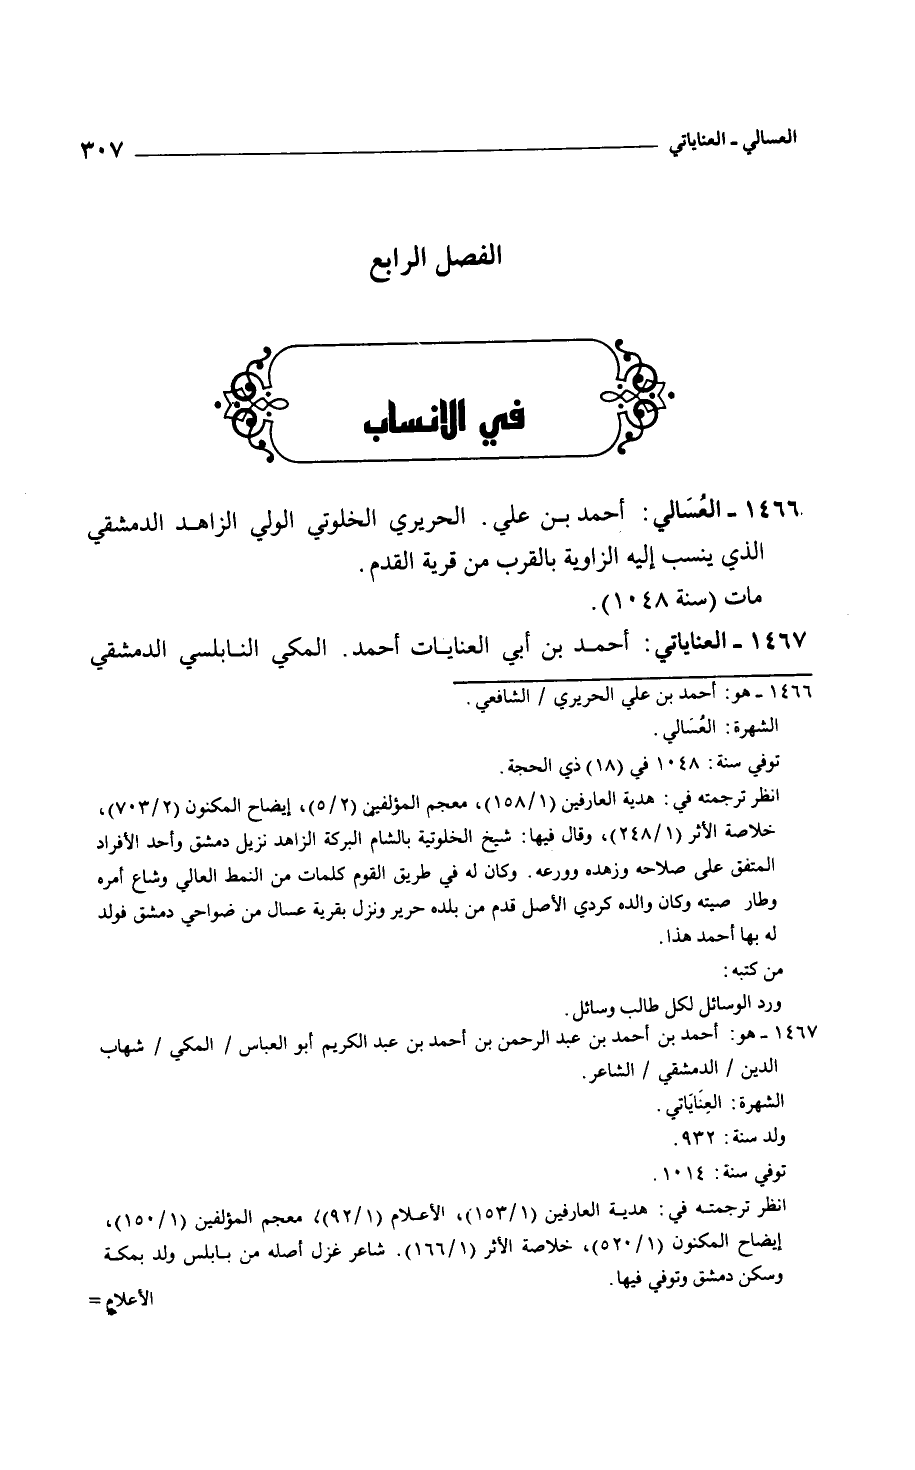 العسالي ـ العناياتي ٣٠٧
الفصل الرابع
في الانساب
١٤٦٦ ـ العُسَالي: أحمد بـن علي. الحريري الخلوتي الولي الزاهـد الدمشقي
الذي ينسب إليه الزاوية بالقرب من قرية القدم.
مات (سنة ١٠٤٨).
١٤٦٧ ـ العناياتي: أحمـد بن أبي العنايـات أحمد. المكي النـابلسي الدمشقي
١٤٦٦ ـ هو: أحمد بن علي الحريري / الشافعي.
الشهرة: العُسَالي.
توفي سنة: ١٠٤٨ في (١٨) ذي الحجة.
انظر ترجمته في: هدية العارفين (١/١٥٨)، معجم المؤلفين (٥/٢)، إيضاح المكنون (٧٠٣/٢)،
خلاصة الأثر (٢٤٨/١)، وقال فيها: شيخ الخلوتية بالشام البركة الزاهد نزيل دمشق وأحد الأفراد
المتفق على صلاحه وزهده وورعه. وكان له في طريق القوم كلمات من النمط العالي وشاع أمره
وطار صيته وكان والده كردي الأصل قدم من بلده حرير ونزل بقرية عسال من ضواحي دمشق فولد
له بها أحمد هذا.
من كتبه:
ورد الوسائل لكل طالب وسائل.
١٤٦٧ ـ هو: أحمد بن أحمد بن عبد الرحمن بن أحمد بن عبد الكريم أبو العباس / المكي / شهاب
الدين / الدمشقي / الشاعر.
الشهرة: العِنَايَاتي.
ولد سنة: ٩٣٢.
توفي سنة: ١٠١٤.
انظر ترجمتـه في: هديـة العارفين (١٥٣/١)، الأعـلام (٩٢/١)، معجم المؤلفين (١٥٠/١)،
إيضاح المكنون (٥٢٠/١)، خلاصة الأثر (١٦٦/١). شاعر غزل أصله من بـابلس ولد بمكـة
وسكن دمشق وتوفي فيها.
الأعلام =